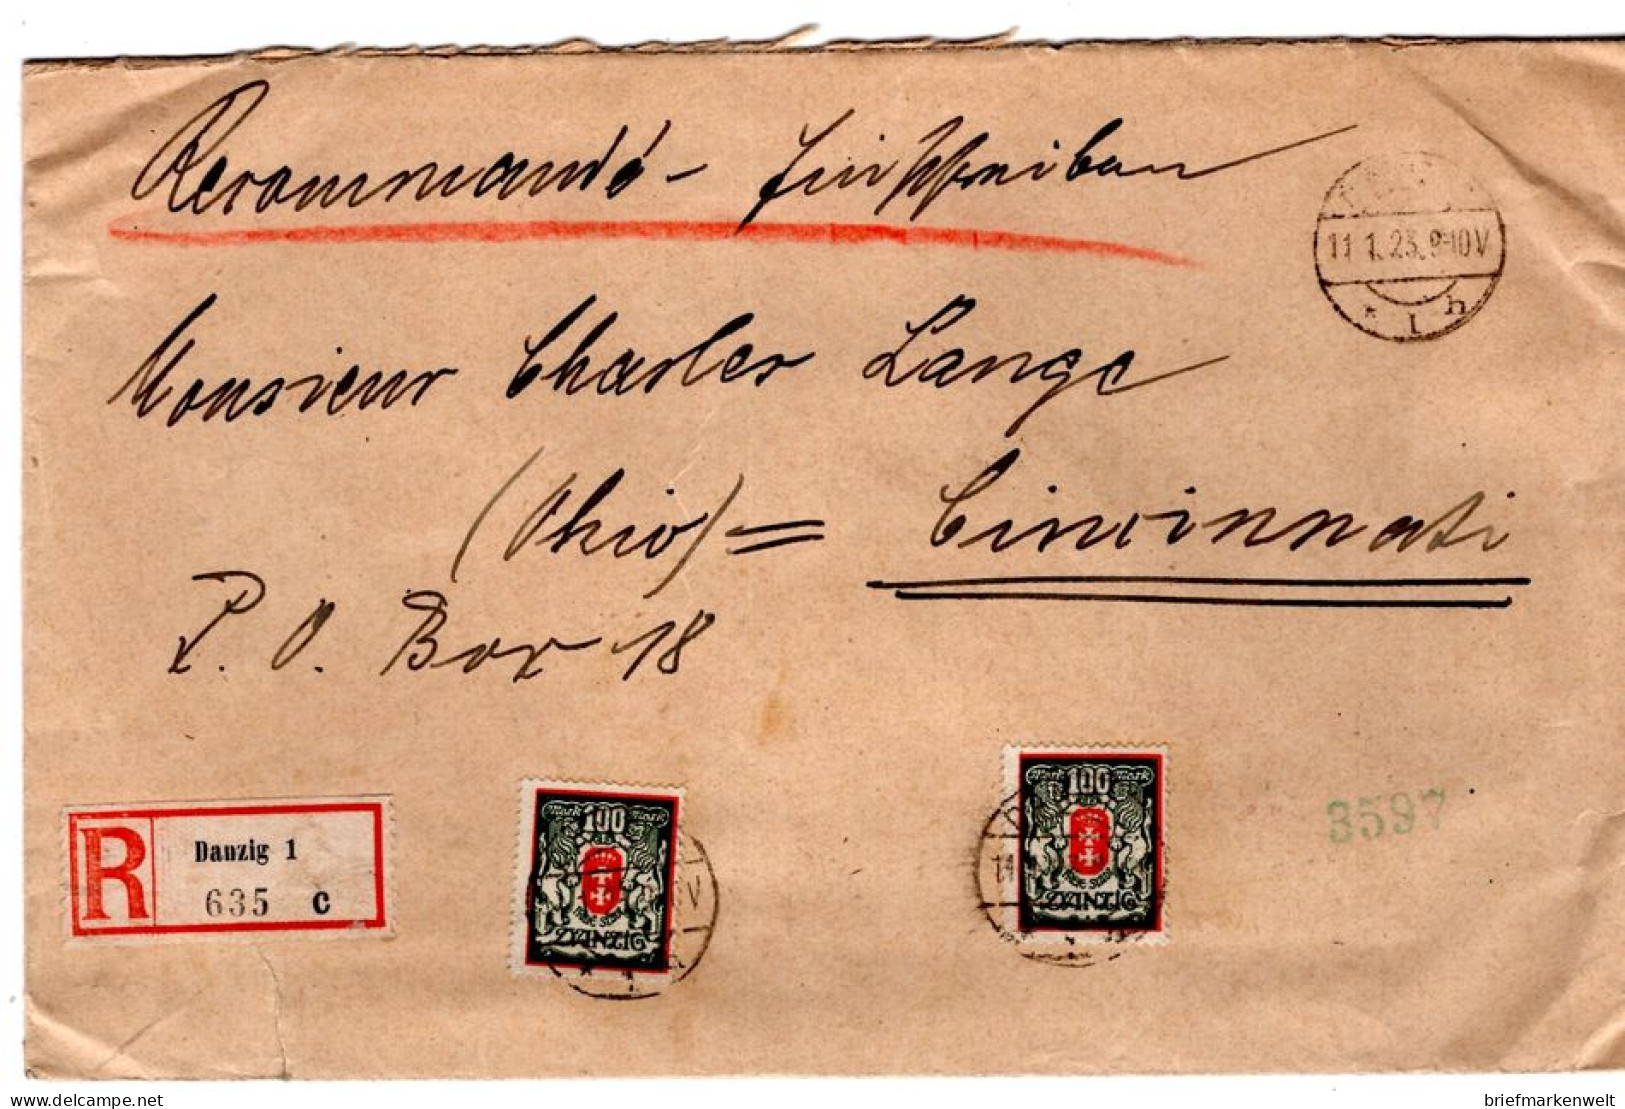 Recommandé - Einschreiben
11.1.23.9-10V
* 1 h
Monsieur Charles Lange
(Ohio) = Cincinnati
P. O. Box 18
R Danzig 1
635 c
Mark 100 Mark
Freie Stadt
DANZIG
Mark 100 Mark
Freie Stadt
DANZIG
3597
delcampe.net
briefmarkenwelt